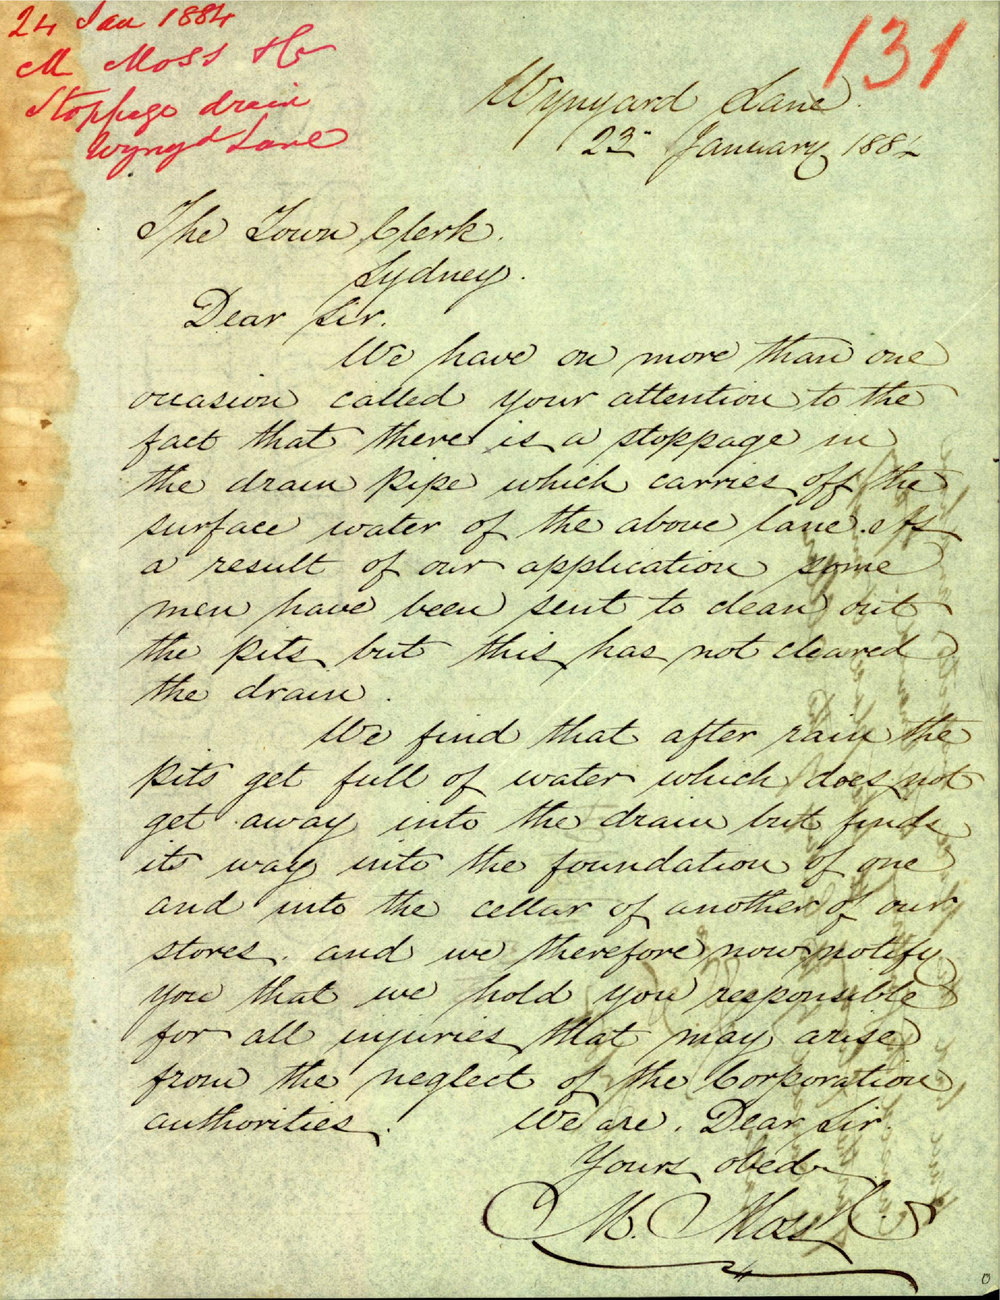 24 Jan 1884
M Moss & Co
Stoppage drain
Wynyd Lane
131
Wynyard Lane.
23rd January 1884
The Town Clerk.
Sydney.
Dear Sir.
We have on more than one
occasion called your attention to the
fact that there is a stoppage in
the drain pipe which carries off the
surface water of the above lane. As
a result of our application some
men have been sent to clean out
the pits but this has not cleared
the drain.
We find that after rain the
pits get full of water which does not
get away into the drain but finds
its way into the foundation of one
and into the cellar of another of our
stores. and we therefore now notify
you that we hold you responsible
for all injuries that may arise
from the neglect of the Corporation
authorities. We are. Dear Sir.
Yours obed
M. Moss & Co